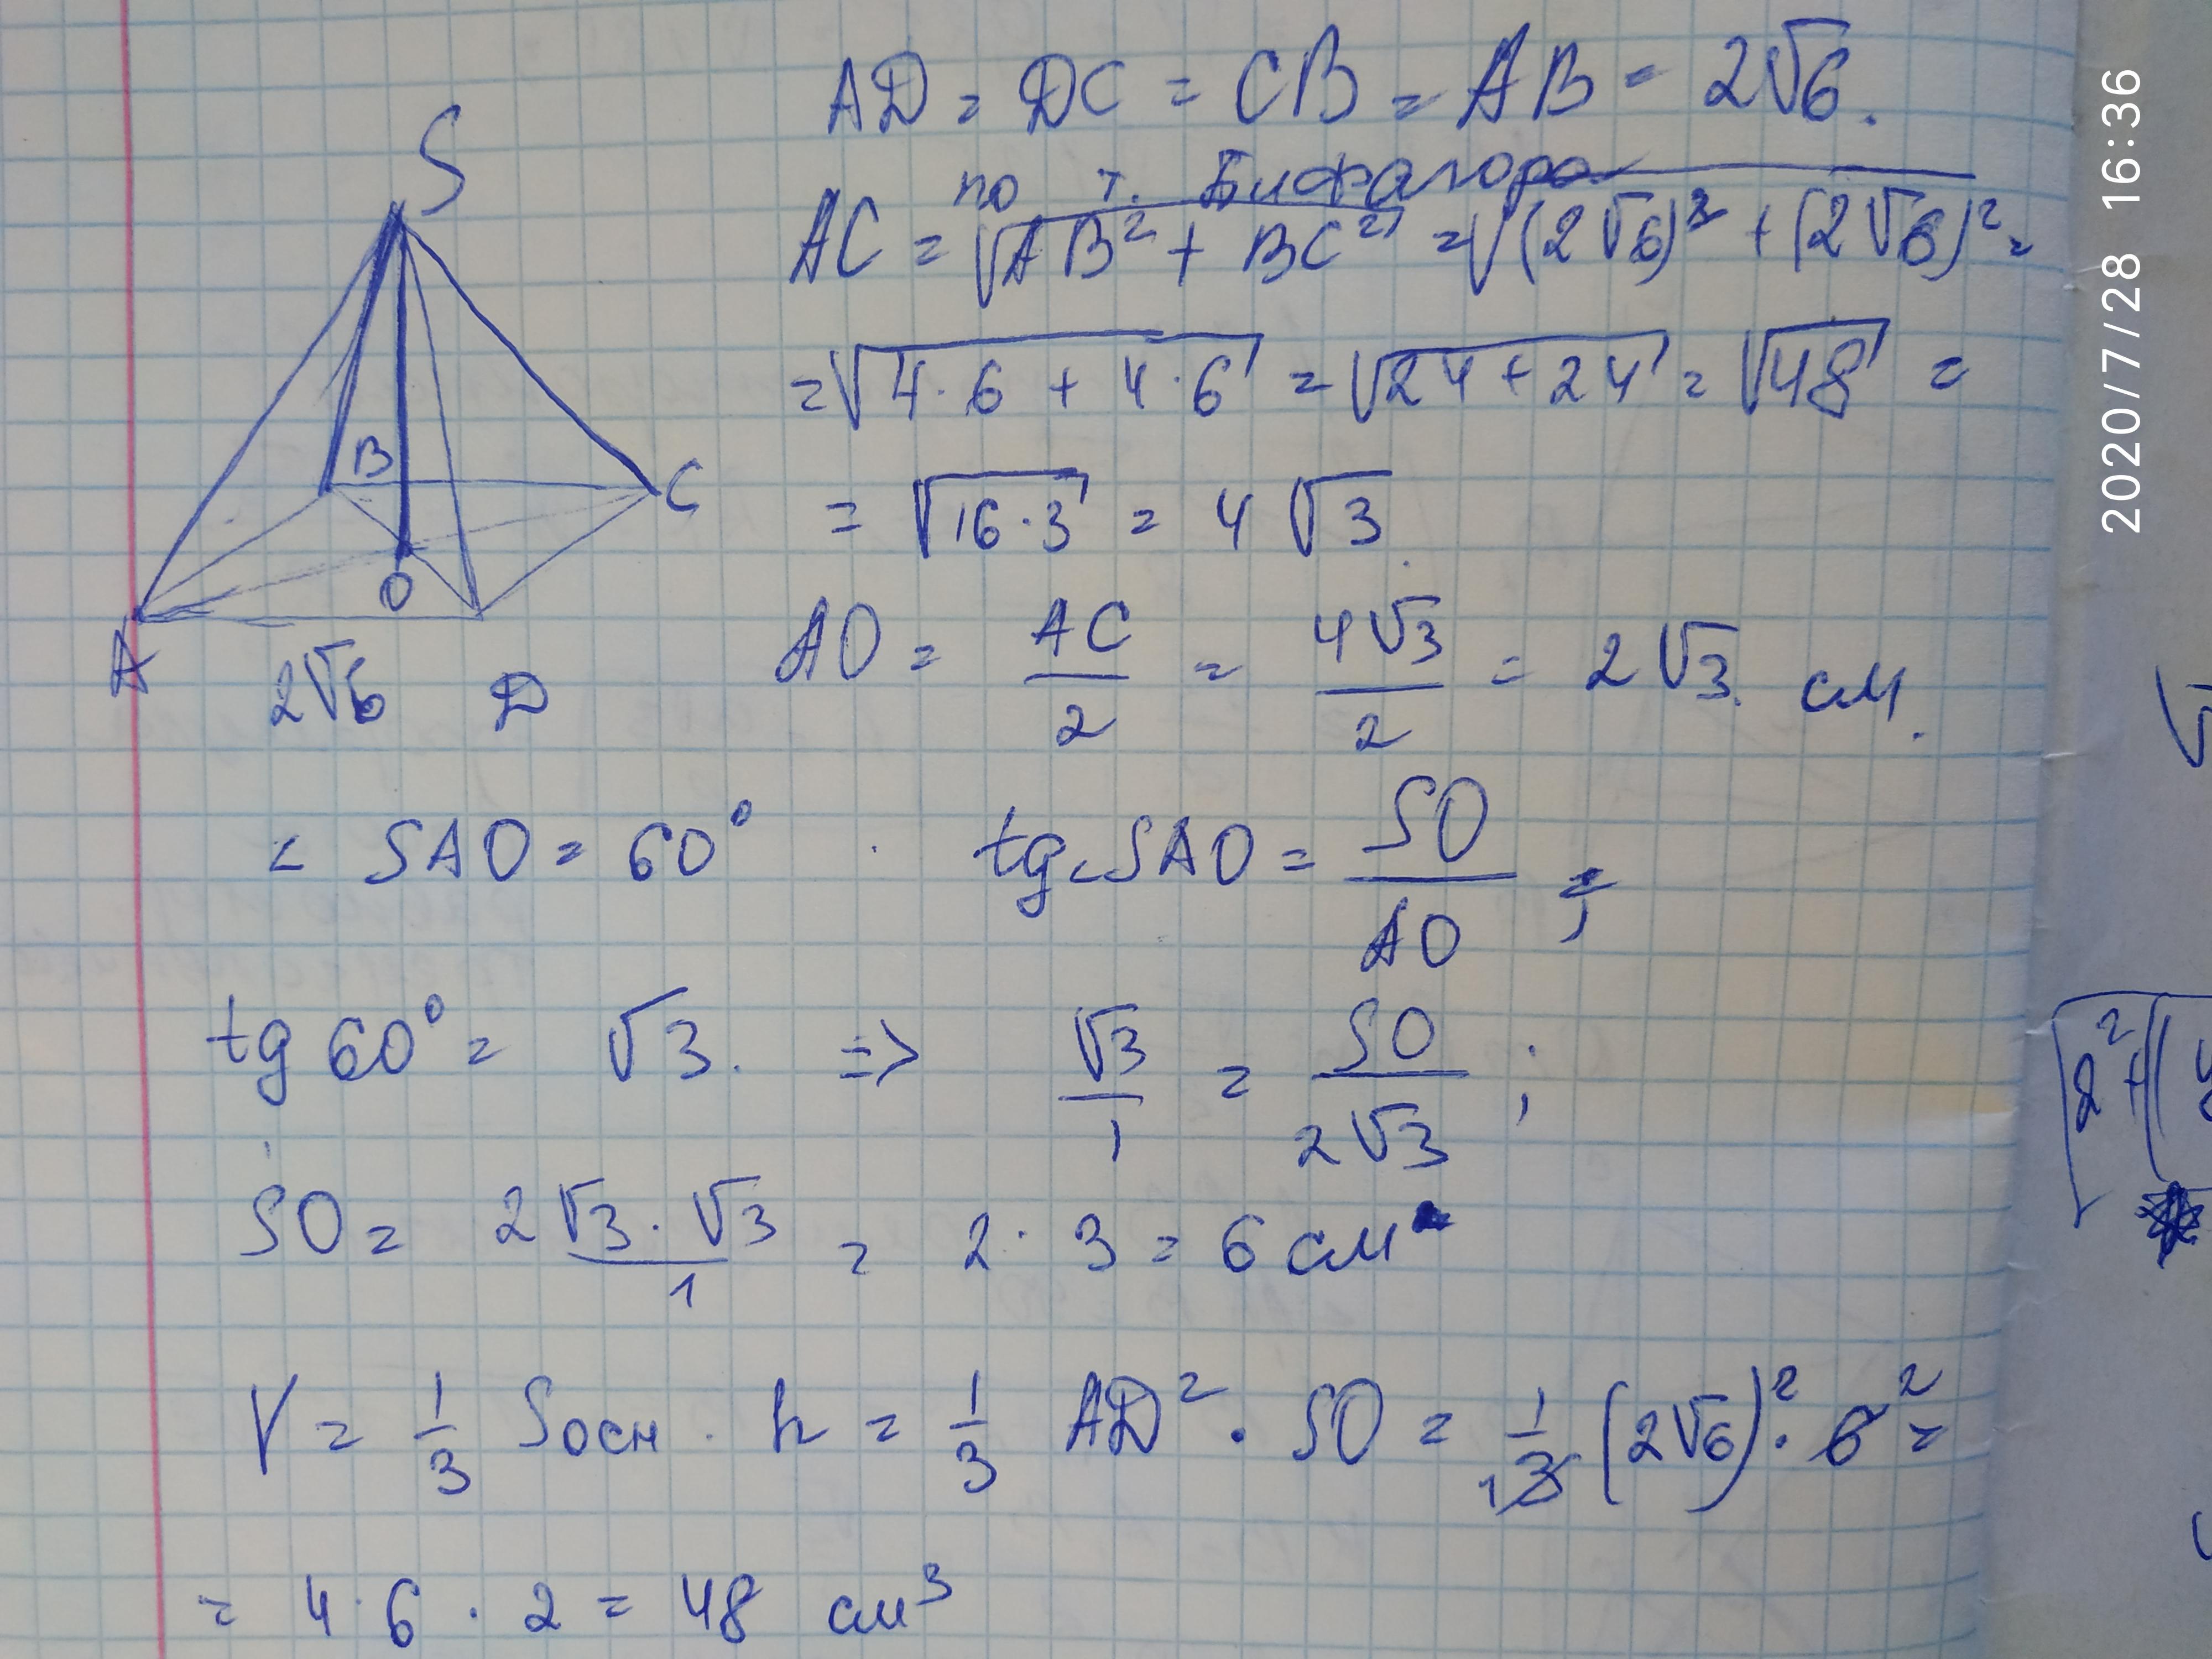 AD = DC = CB = AB = 2√6.
по т. Бифагора
AC = √AB² + BC² = √(2√6)² + (2√6)² =
= √4·6 + 4·6 = √24 + 24 = √48 =
= √16·3 = 4√3.
AO = AC/2 = 4√3/2 = 2√3 см.
S
B
C
O
A
2√6 D
∠ SAO = 60° tg∠SAO = SO/AO ;
tg 60° = √3. => √3/1 = SO/2√3 ;
SO = 2√3·√3/1 = 2·3 = 6 см
V = 1/3 Sосн · h = 1/3 AD² · SO = 1/3 (2√6)² · 6 =
1 2
= 4·6·2 = 48 см³
2020/7/28 16:36